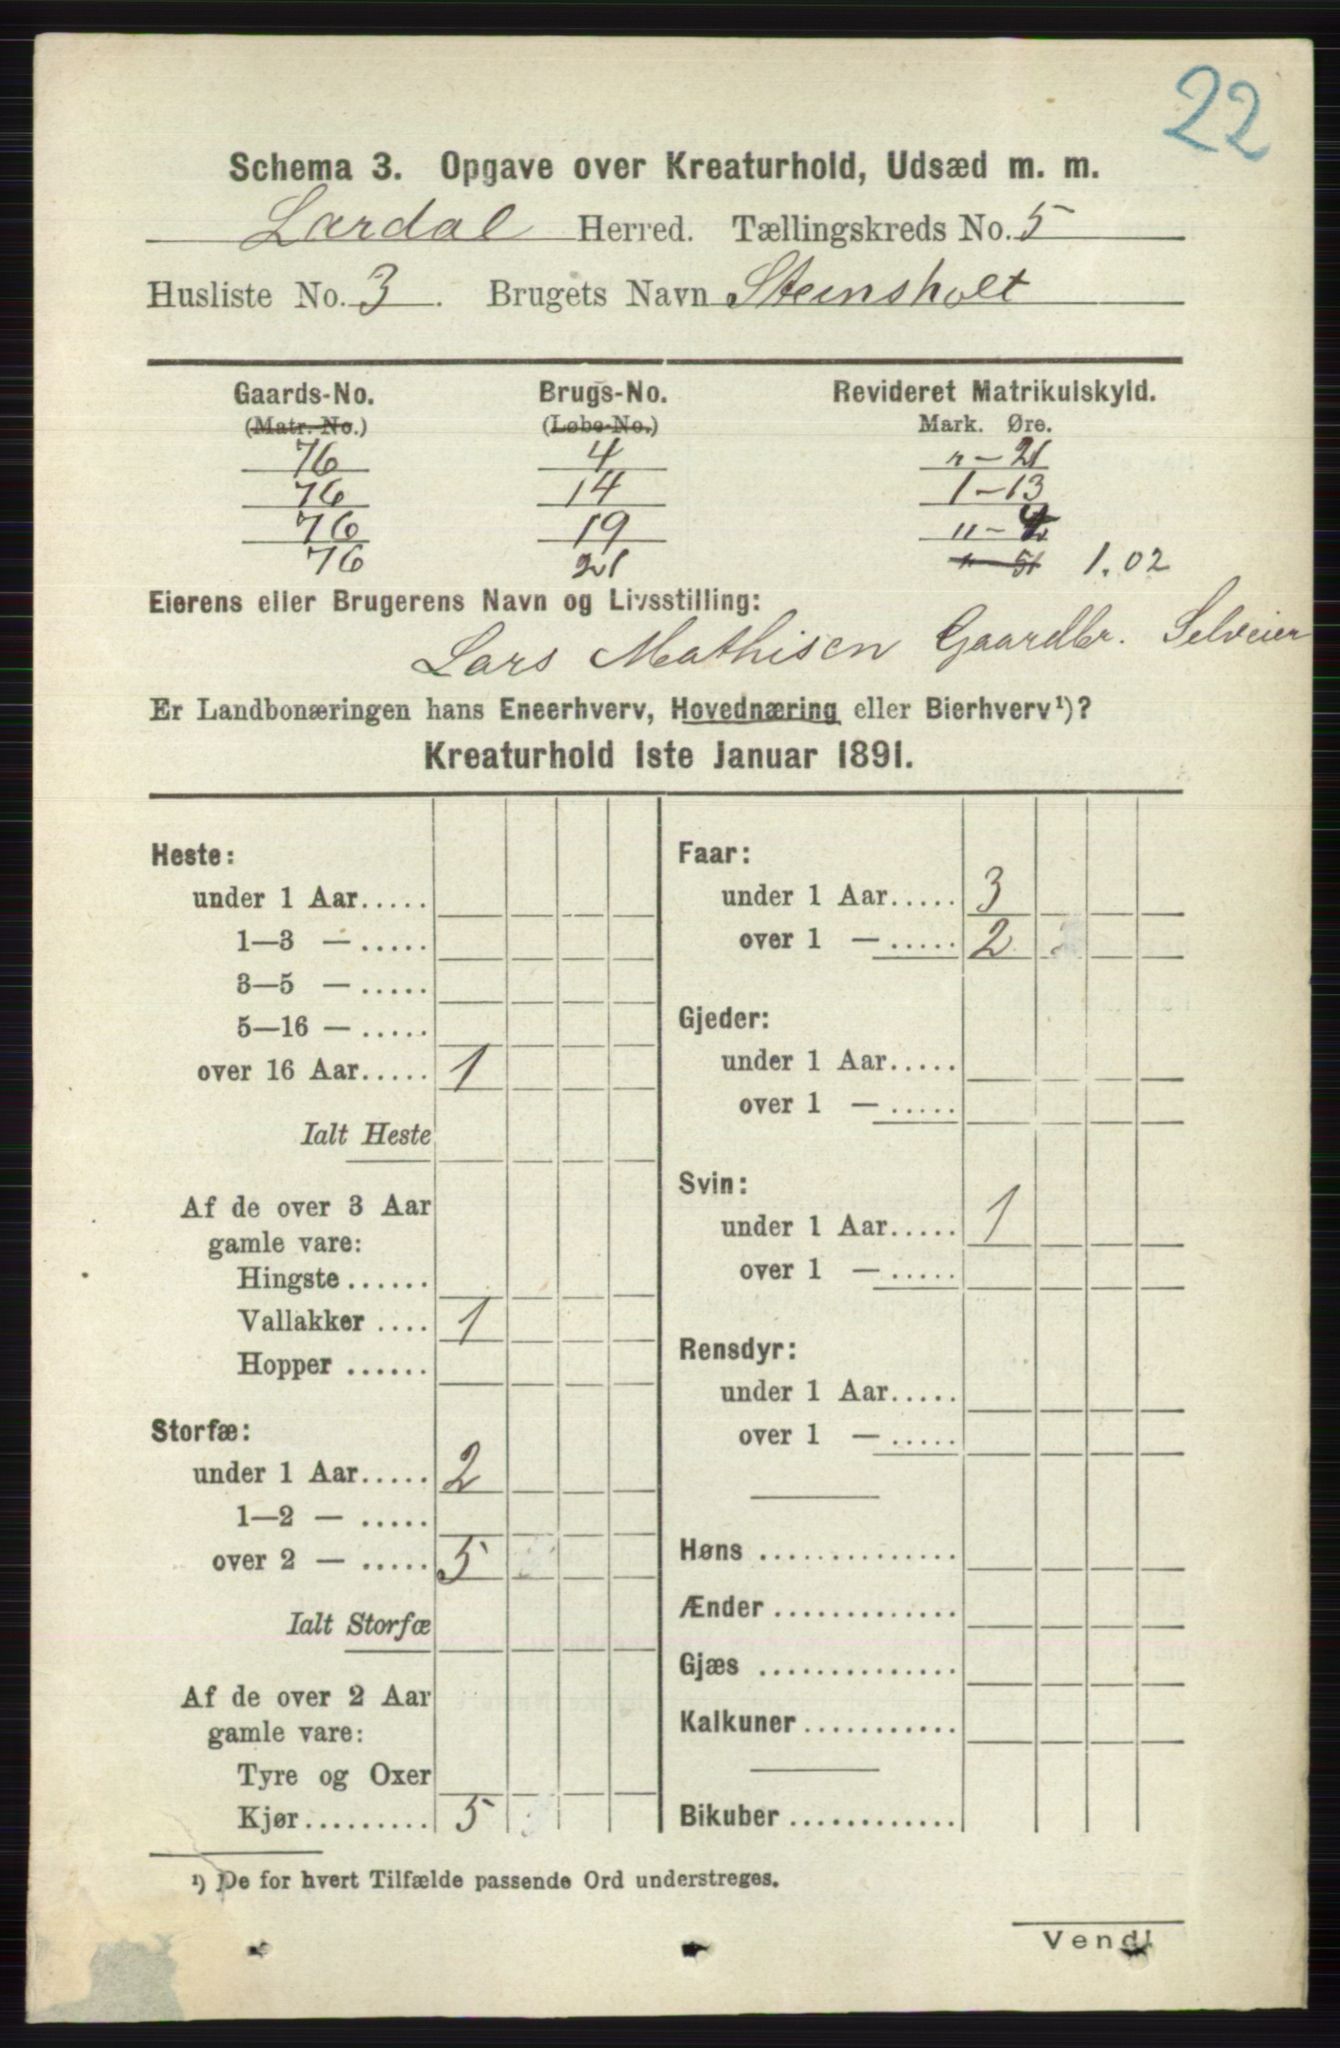 22
Schema 3. Opgave over Kreaturhold, Udsæd m. m.
Lardal Herred. Tællingskreds No. 5
Husliste No. 3. Brugets Navn Steinsholt
Gaards-No. Brugs-No. Revideret Matrikulskyld.
(Matr. No.) (Løbe-No.) Mark. Øre.
76 4 " - 21
76 14 1 - 13
76 19 " -
76 21 " 51 1.02
Eierens eller Brugerens Navn og Livsstilling:
Lars Mathisen Gaardbr. Selveier
Er Landbonæringen hans Eneerhverv, Hovednæring eller Bierhverv ¹)?
Kreaturhold 1ste Januar 1891.
Heste:
under 1 Aar.....
1—3 — .....
3—5 — .....
5—16 — .....
over 16 Aar..... 1
Ialt Heste
Af de over 3 Aar
gamle vare:
Hingste ......
Vallakker .... 1
Hopper ......
Storfæ:
under 1 Aar..... 2
1—2 — .....
over 2 — ..... 5
Ialt Storfæ
Af de over 2 Aar
gamle vare:
Tyre og Oxer
Kjør......... 5
Faar:
under 1 Aar..... 3
over 1 — ..... 2
Gjeder:
under 1 Aar.....
over 1 — .....
Svin:
under 1 Aar..... 1
over 1 — .....
Rensdyr:
under 1 Aar.....
over 1 — .....
Høns ..............
Ænder .............
Gjæs ..............
Kalkuner...........
Bikuber ............
¹) De for hvert Tilfælde passende Ord understreges.
Vend!